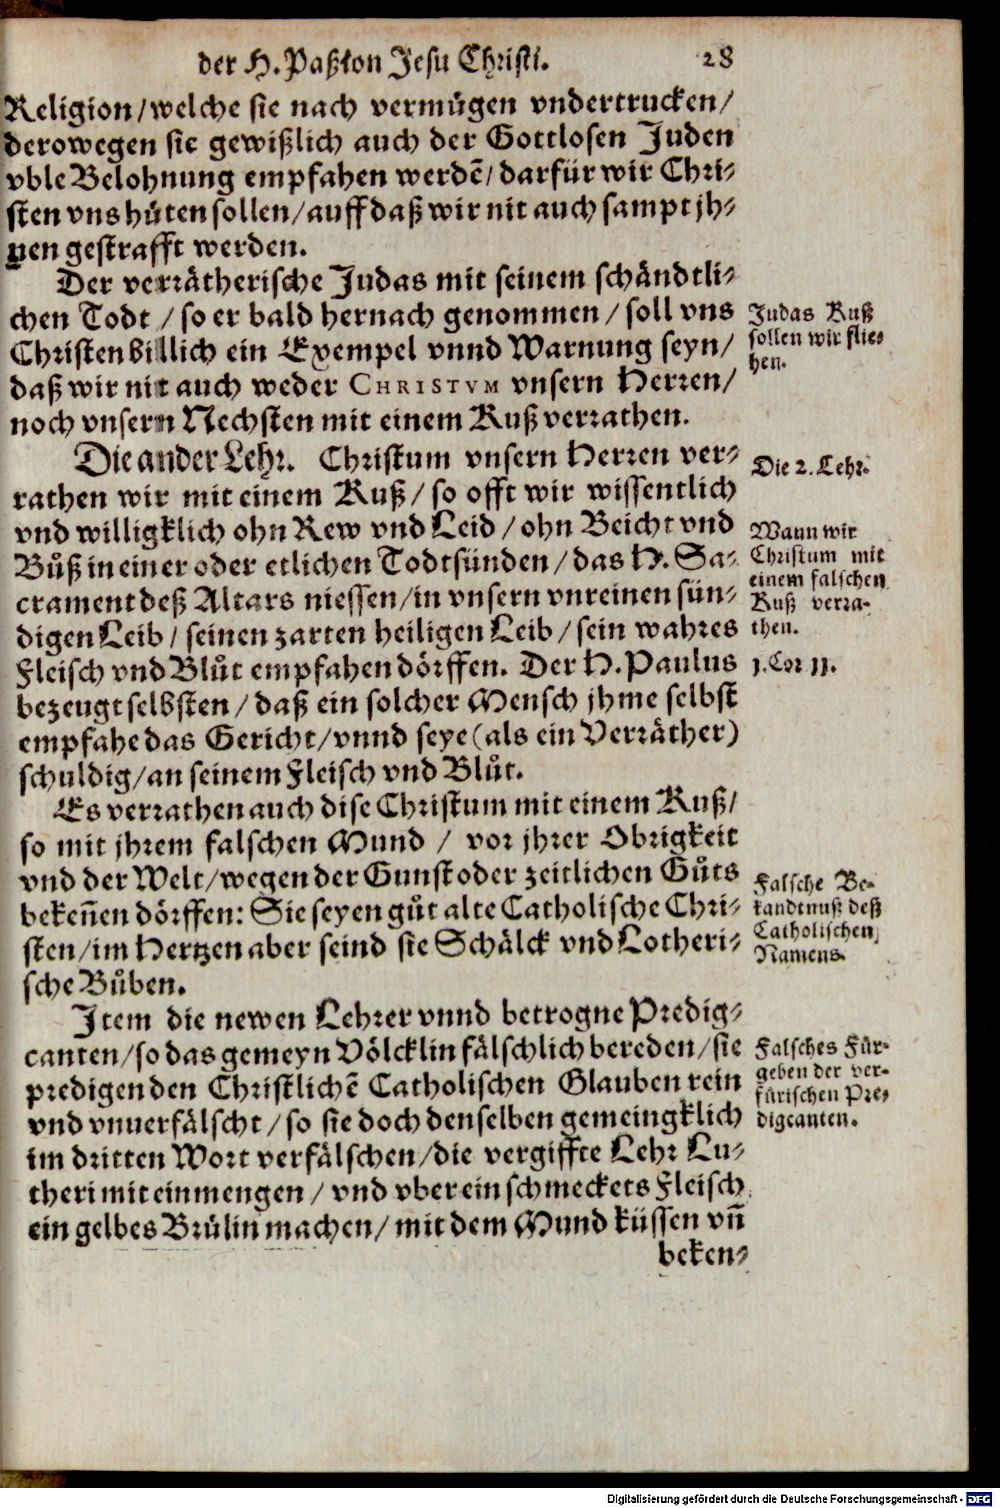 der H. Paßion Jesu Christi. 28
Religion/welche sie nach vermügen vndertrucken/
derowegen sie gewißlich auch der Gottlosen Juden
vble Belohnung empfahen werdē/darfür wir Chri-
sten vns hüten sollen/auff daß wir nit auch sampt jh-
nen gestrafft werden.
Der verrätherische Judas mit seinem schändtli-
chen Todt / so er bald hernach genommen / soll vns
Christen billich ein Exempel vnnd Warnung seyn/
daß wir nit auch weder CHRISTVM vnsern Herren/
noch vnsern Nechsten mit einem Kuß verrathen.
Judas Kuß
sollen wir flie-
hen.
Die ander Lehr. Christum vnsern Herren ver-
rathen wir mit einem Kuß / so offt wir wissentlich
vnd willigklich ohn Rew vnd Leid / ohn Beicht vnd
Bůß in einer oder etlichen Todtsünden / das H. Sa-
crament deß Altars niessen/in vnsern vnreinen sün-
digen Leib / seinen zarten heiligen Leib / sein wahres
Fleisch vnd Blůt empfahen dörffen. Der H. Paulus
bezeugt selbsten / daß ein solcher Mensch jhme selbst
empfahe das Gericht/vnnd seye (als ein Verräther)
schuldig/an seinem Fleisch vnd Blůt.
Die 2. Lehr.
Wann wir
Christum mit
einem falschen
Kuß verra-
then.
1. Cor 11.
Es verrathen auch dise Christum mit einem Kuß/
so mit jhrem falschen Mund / vor jhrer Obrigkeit
vnd der Welt/wegen der Gunst oder zeitlichen Gůts
bekeñen dörffen: Sie seyen gůt alte Catholische Chri-
sten/im Hertzen aber seind sie Schälck vnd Lotheri-
sche Bůben.
Falsche Be-
kandtnuß deß
Catholischen
Namens.
Item die newen Lehrer vnnd betrogne Predig-
canten/so das gemeyn Völcklin fälschlich bereden/sie
predigen den Christlichē Catholischen Glauben rein
vnd vnuerfälscht / so sie doch denselben gemeingklich
im dritten Wort verfälschen/die vergiffte Lehr Lu-
theri mit einmengen / vnd vber ein schmeckets Fleisch
ein gelbes Brülin machen/ mit dem Mund küssen vñ
beken-
Falsches Für-
geben der ver-
fürischen Pre-
digcanten.
Digitalisierung gefördert durch die Deutsche Forschungsgemeinschaft - DFG